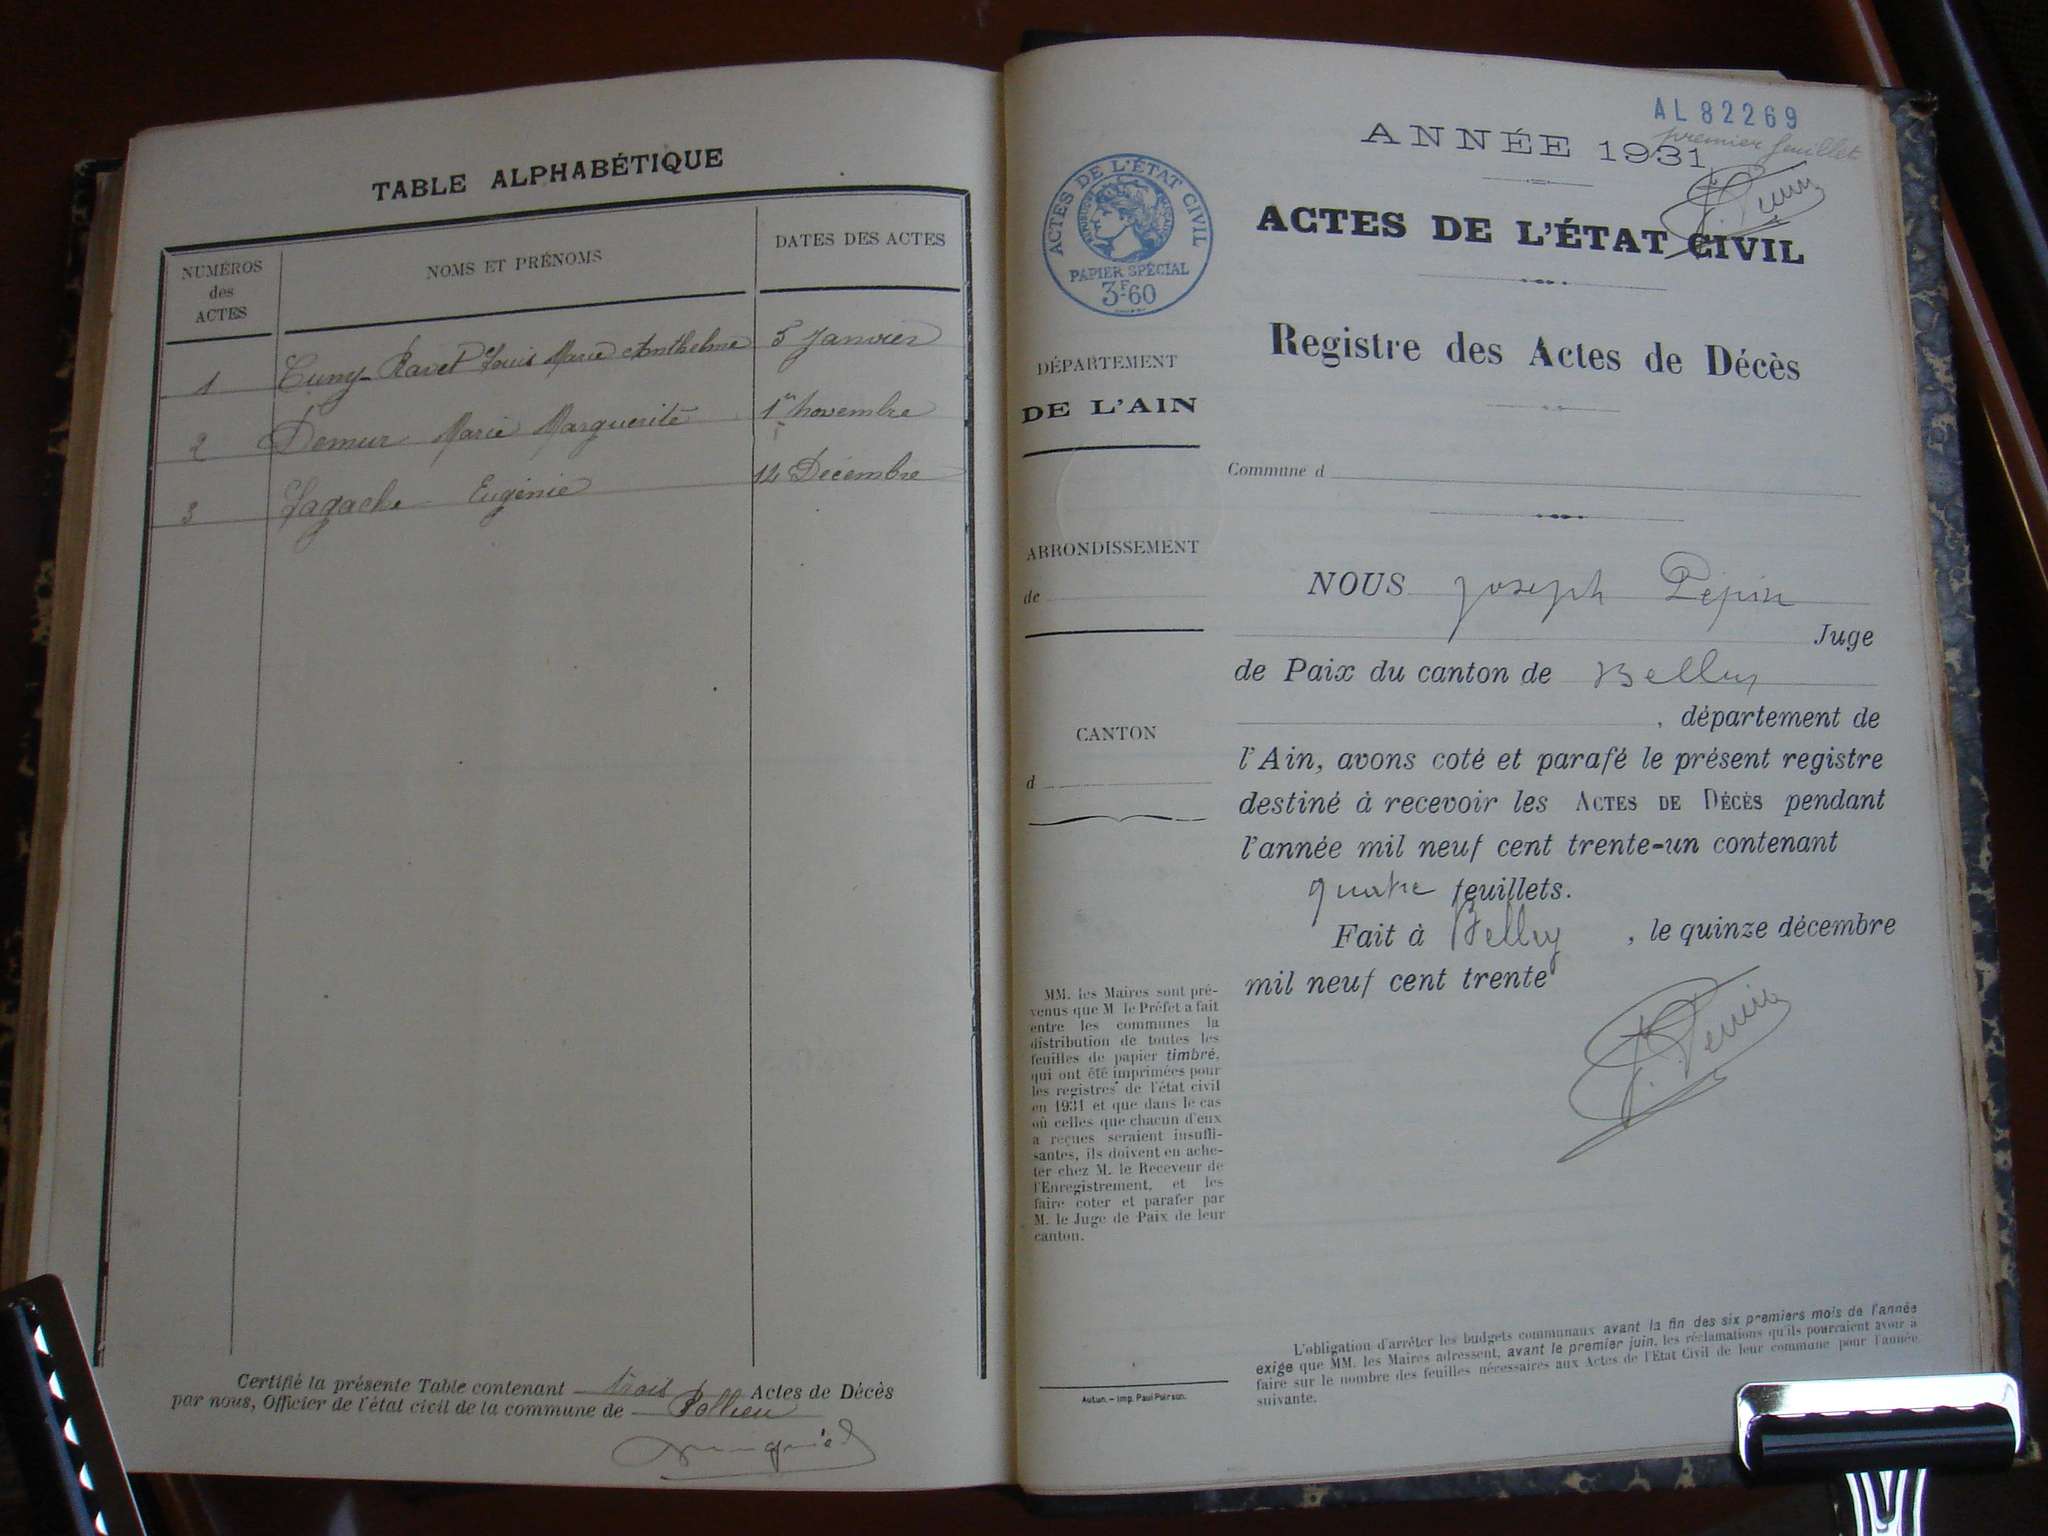 TABLE ALPHABÉTIQUE
NUMÉROS
des
ACTES
NOMS ET PRÉNOMS
DATES DES ACTES
1 Cuny-Ravet Louis Marie Anthelme 5 Janvier
2 Demur Marie Marguerite 1er novembre
3 Lagache Eugénie 14 Décembre
Certifié la présente Table contenant trois Actes de Décès
par nous, Officier de l'état civil de la commune de Pollieu
AL 82269
premier feuillet
ANNÉE 1931
ACTES DE L'ÉTAT CIVIL
PAPIER SPÉCIAL
3F.60
ACTES DE L'ÉTAT CIVIL
Registre des Actes de Décès
DÉPARTEMENT
DE L'AIN
Commune d
ARRONDISSEMENT
de
CANTON
d
NOUS Joseph Pépin
Juge
de Paix du canton de Belley
, département de
l'Ain, avons coté et parafé le présent registre
destiné à recevoir les ACTES DE DÉCÈS pendant
l'année mil neuf cent trente-un contenant
quatre feuillets.
Fait à Belley , le quinze décembre
mil neuf cent trente
MM. les Maires sont pré-
venus que M. le Préfet a fait
entre les communes la
distribution de toutes les
feuilles de papier timbré,
qui ont été imprimées pour
les registres de l'état civil
en 1931 et que dans le cas
où celles que chacun d'eux
a reçues seraient insuffi-
santes, ils doivent en ache-
ter chez M. le Receveur de
l'Enregistrement, et les
faire coter et parafer par
M. le Juge de Paix de leur
canton.
L'obligation d'arrêter les budgets communaux avant la fin des six premiers mois de l'année
exige que MM. les Maires adressent, avant le premier juin, les réclamations qu'ils pourraient avoir à
faire sur le nombre des feuilles nécessaires aux Actes de l'Etat Civil de leur commune pour l'année
suivante.
Autun. — Imp. Paul Poirson.